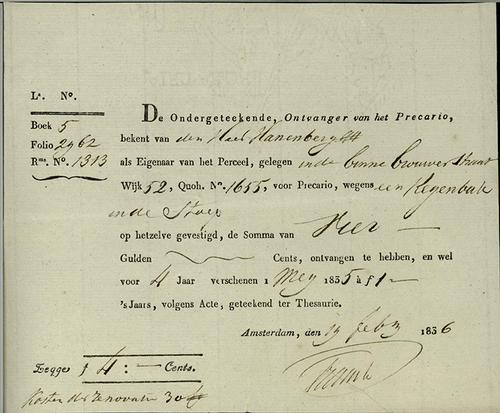 Lª. Nº.
Boek 5
Folio 2962
Rms. Nº. 1313
De Ondergeteekende, Ontvanger van het Precario,
bekent van den Heer Hanenbergh
als Eigenaar van het Perceel, gelegen in de binne brouwer straat
Wijk 52, Quoh. Nº. 1655, voor Precario, wegens een Regenbak
in de Stoep
op hetzelve gevestigd, de Somma van Vier
Gulden Cents, ontvangen te hebben, en wel
voor 4 Jaar verschenen 1 Mey 1835 à ƒ1-
'sJaars, volgens Acte, geteekend ter Thesaurie.
Amsterdam, den 19 feb 1836
Zegge ƒ 4 : - Cents.
Kosten der renovatie 30